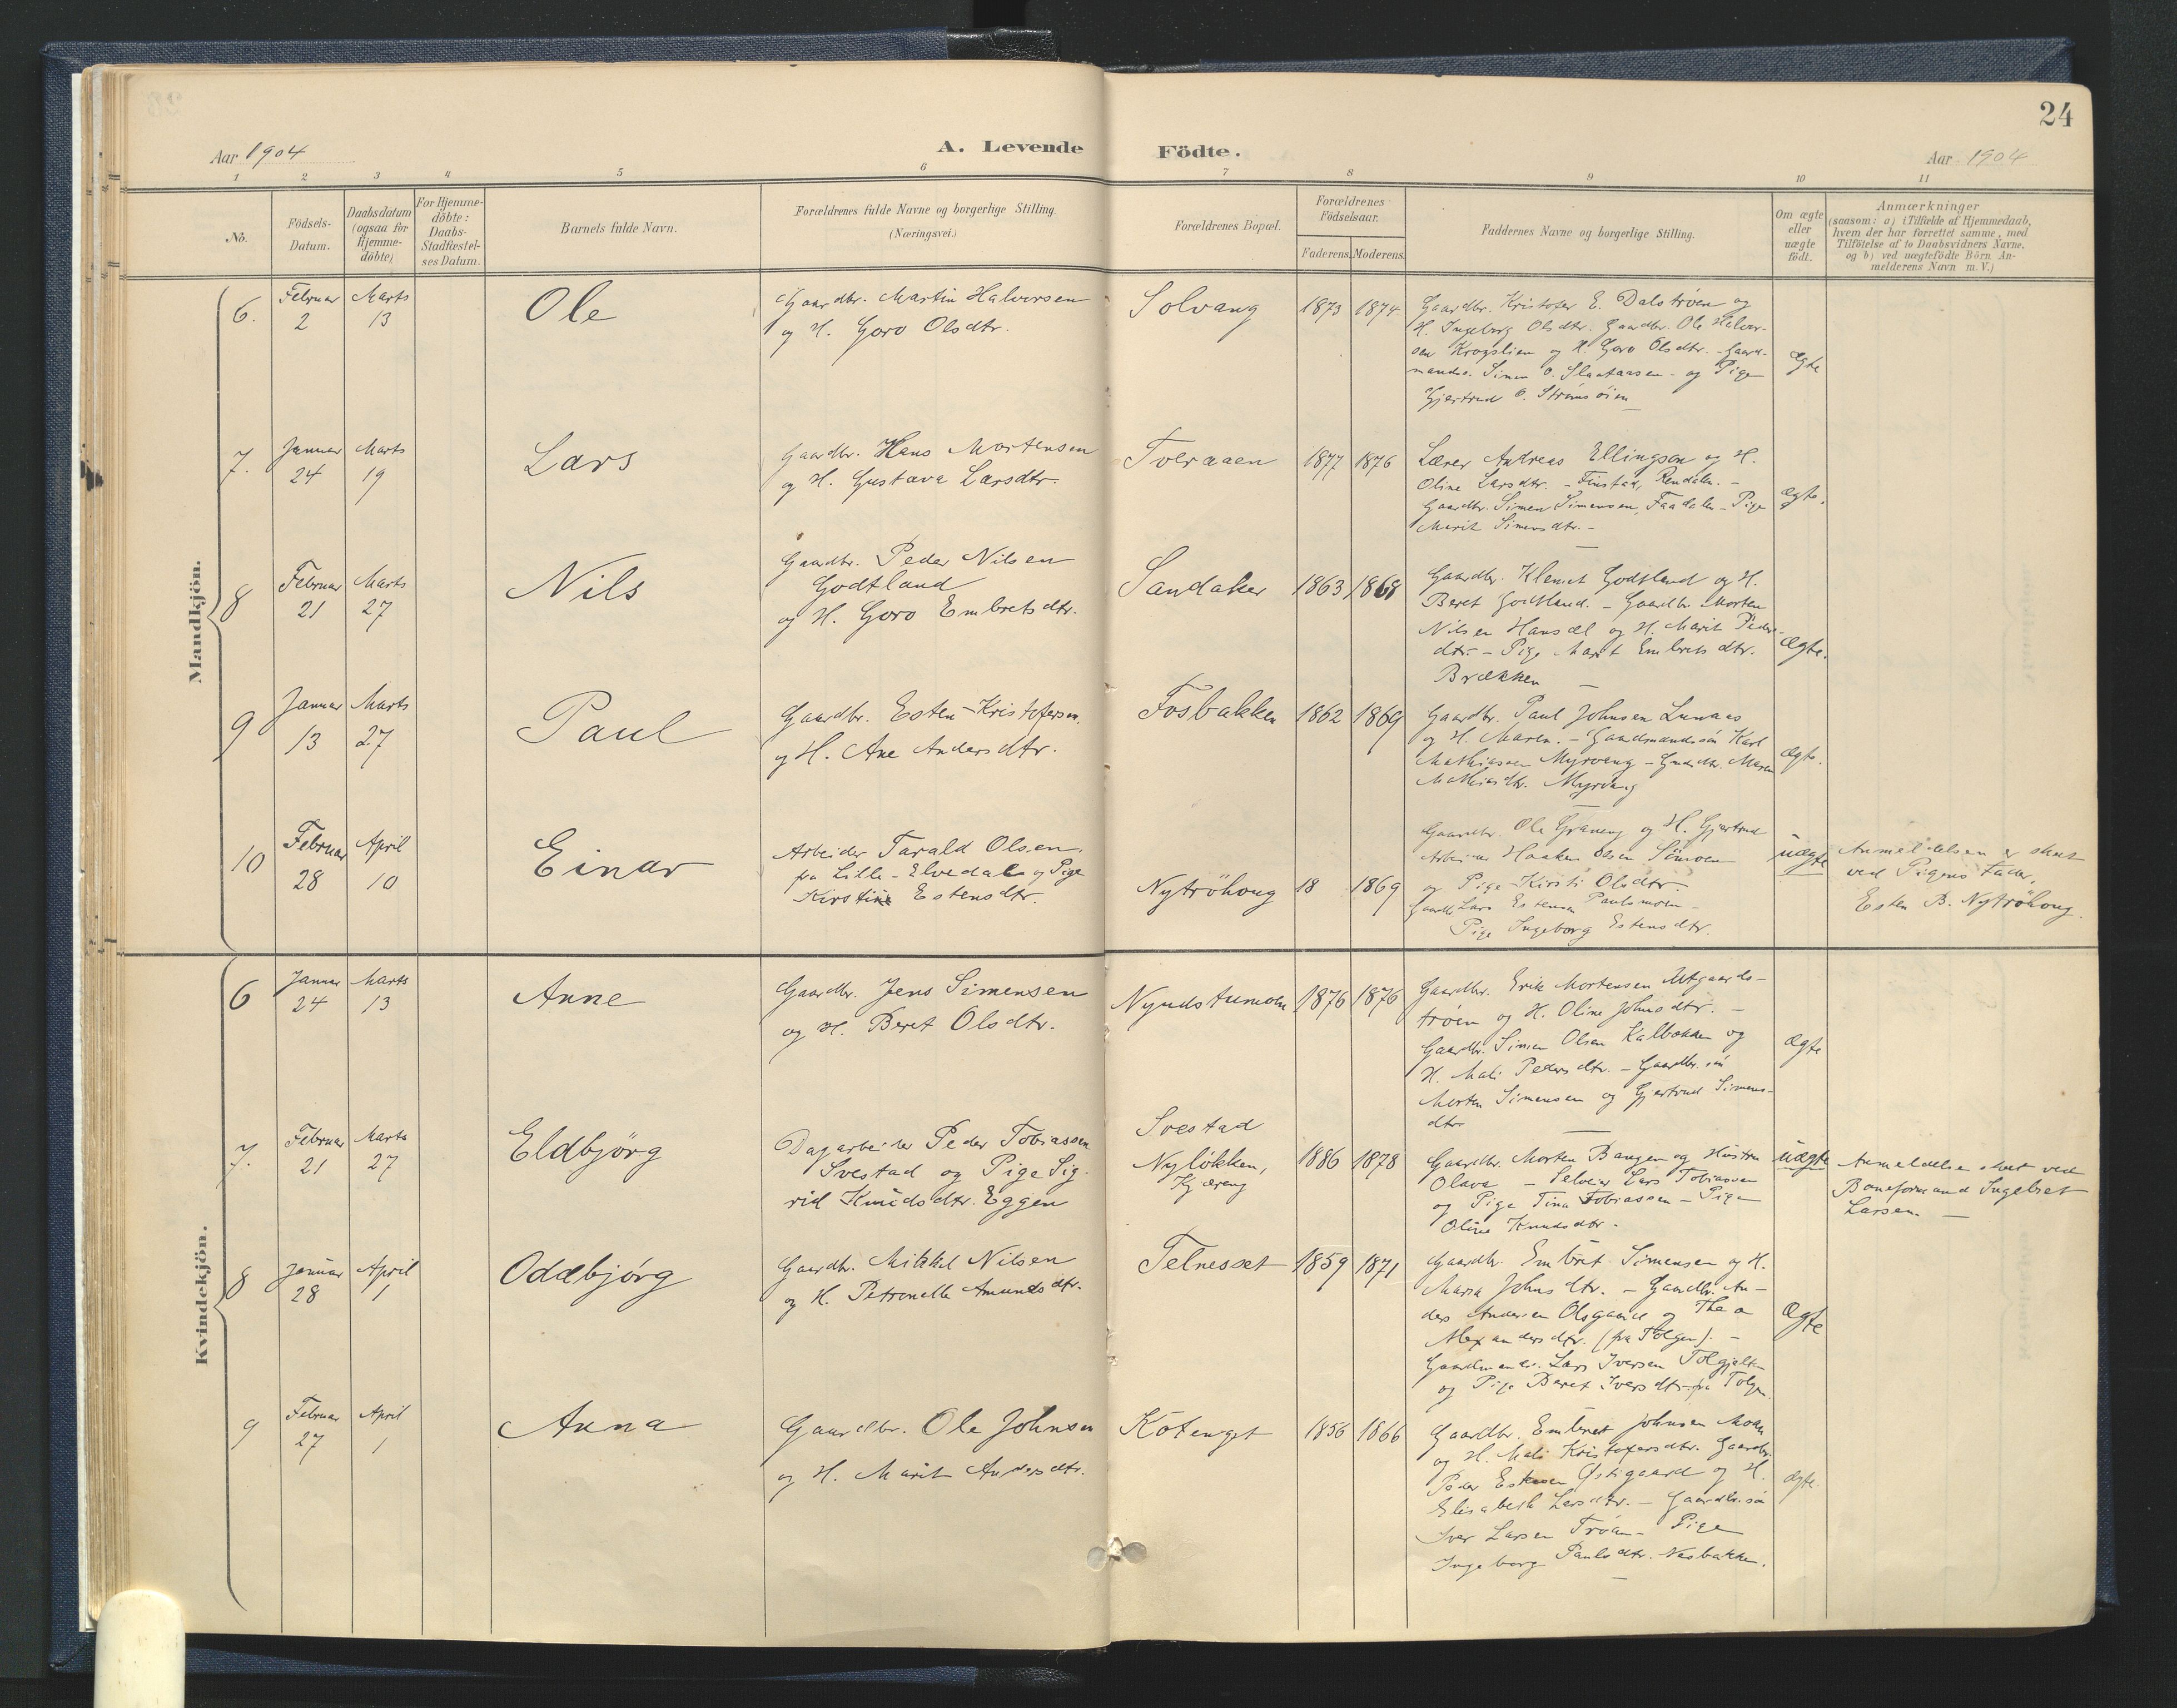 24
Aar 1904
A. Levende Födte.
Aar 1904
1 2 3 4 5 6 7 8 9 10 11
No.
Födsels-
Datum.
Daabsdatum
(ogsaa for
Hjemme-
döbte)
For Hjemme-
döbte:
Daabs-
Stadfæstel-
ses Datum.
Barnets fulde Navn.
Forældrenes fulde Navne og borgerlige Stilling.
(Næringsvei.)
Forældrenes Bopæl.
Forældrenes
Födselsaar.
Faderens. Moderens.
Faddernes Navne og borgerlige Stilling.
Om ægte
eller
uægte
födt.
Anmærkninger
(saasom: a) i Tilfælde af Hjemmedaab,
hvem der har forrettet samme, med
Tilföielse af to Daabsvidners Navne,
og b) ved uægtefödte Börn An-
melderens Navn m. V.)
Mandkjön.
6.
Februar
2
Marts
13
Ole
Gaardbr. Martin Halvorsen
og H. Goro Olsdtr.
Solvang
1873
1874
Gaardbr. Kristofer E. Dalströen og
H. Ingeborg Olsdtr. Gaardbr. Ole Halvor-
sen Krogslien og H. Goro Olsdtr. - Gaard-
mandss. Simen O. Slaataasen - og Pige
Gjertrud O. Strömsöien
Ægte
7.
Januar
24
Marts
19
Lars
Gaardbr. Hans Mortensen
og H. Gustava Larsdtr.
Tveraaen
1877
1876
Lærer Andreas Ellingsen og H.
Oline Larsdtr. - Finstad, Rendalen. -
Gaardbr. Simen Simensen, Faadalen - Pige
Marit Simensdtr. -
ægte.
8
Februar
21
Marts
27
Nils
Gaardbr. Peder Nilsen
Godtland
og H. Goro Embretsdtr.
Sandaker
1863
1868
Gaardbr. Klemet Godtland og H.
Beret Godtland. - Gaardbr. Morten
Nilsen Hansæl og H. Marit Peders-
dtr. - Pige Marit Embretsdtr.
Brækken
Ægte.
9
Januar
13
Marts
27
Paul
Gaardbr. Esten Kristofersen
og H. Ane Andersdtr.
Fosbakken
1862
1869
Gaardbr. Paul Johnsen Lunaas
og H. Maren. - Gaardmandssön Karl
Mathiassen Myrvang - Maren
Mathiasdtr. Myrvang
Ægte.
10
Februar
28
April
10
Einar
Arbeider Tarald Olsen
fra Lille-Elvedal og Pige
Kirstine Estensdtr.
Nytröhoug
18
1869
Gaardbr. Ole Gråneng og H. Gjertrud
Arbeider Haaken Olsen Simoen
og Pige Kirsti Olsdtr.
Gaardb. Lars Estensen Paulsmoen -
Pige Ingeborg Estensdtr.
uægte
Anmeldelsen er skeet
ved Pigens Fader,
Esten B. Nytröhoug.
Kvindekjön.
6
Januar
24
Marts
13
Anne
Gaardbr. Jens Simensen
og H. Beret Olsdtr.
Nyudstumoen
1876
1876
Gaardbr. Erik Mortensen Utgaards-
tröen og H. Oline Johnsdtr. -
Gaardbr. Simen Olsen Kalbækken og
H. Mali Pedersdtr. - Gaardbr. sön
Morten Simensen og Gjertrud Simens-
dtr.
Ægte
7.
Februar
21
Marts
27
Eldbjörg
Dagarbeider Peder Tobiassen
Svestad og Pige Sig-
rid Knudsdtr. Eggen
Svestad
Nylökken,
Kjæreng
1886
1878
Gaardbr. Morten Bangen og Hustru
Olava - Selveier Lars Tobiassen
og Pige Tina Tobiassen - Pige
Oline Knudsdtr.
uægte
Anmeldelse skeet ved
Baneformand Ingebret
Larsen. -
8
Januar
28
April
1
Oddbjörg
Gaardbr. Mikkel Nilsen
og H. Petronelle Amundsdtr.
Telnesset
1859
1871
Gaardbr. Embret Simensen og H.
Maria Johnsdtr. - Gaardbr. An-
ders Andersen Olsgaard og Thea
Alexandersdtr. (fra Tolgen). -
Gaardmands. Lars Iversen
og Pige Beret Iversdtr. fra Tolgen.
Ægte
9
Februar
27
April
1
Anna
Gaardbr. Ole Johnsen
og H. Marit Andersdtr.
Kotenget
1856
1866
Gaardbr. Embret Johnsen Moen
og H. Mali Kristofersdtr. Gaardbr.
Peder Estensen Östigaard og H.
Elisabeth Larsdtr. - Gaardbr. sön
Iver Larsen Tröen - Pige
Ingeborg Paulsdtr. Nesbakken.
ægte